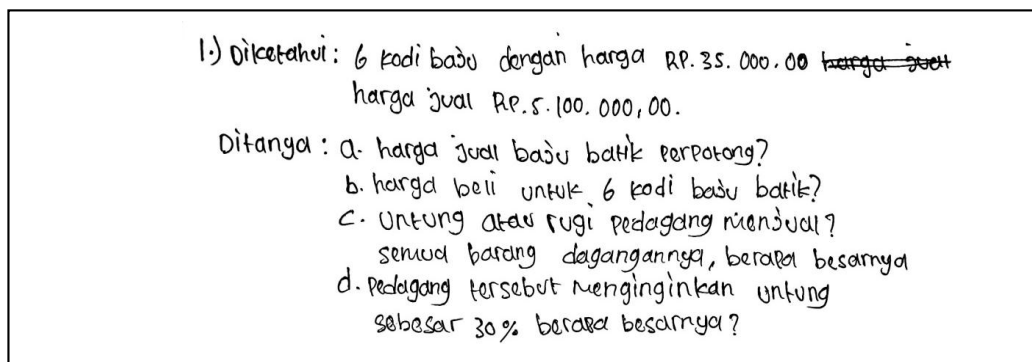 1.) Diketahui: 6 kodi baju dengan harga RP. 35. 000,00 harga jual
harga jual RP.5.100.000,00.
Ditanya: a. harga jual baju batik perpotong?
b. harga beli untuk 6 kodi baju batik?
c. Untung atau rugi pedagang menjual?
semua barang dagangannya, berapa besarnya
d. Pedagang tersebut menginginkan untung
sebesar 30% berapa besarnya?